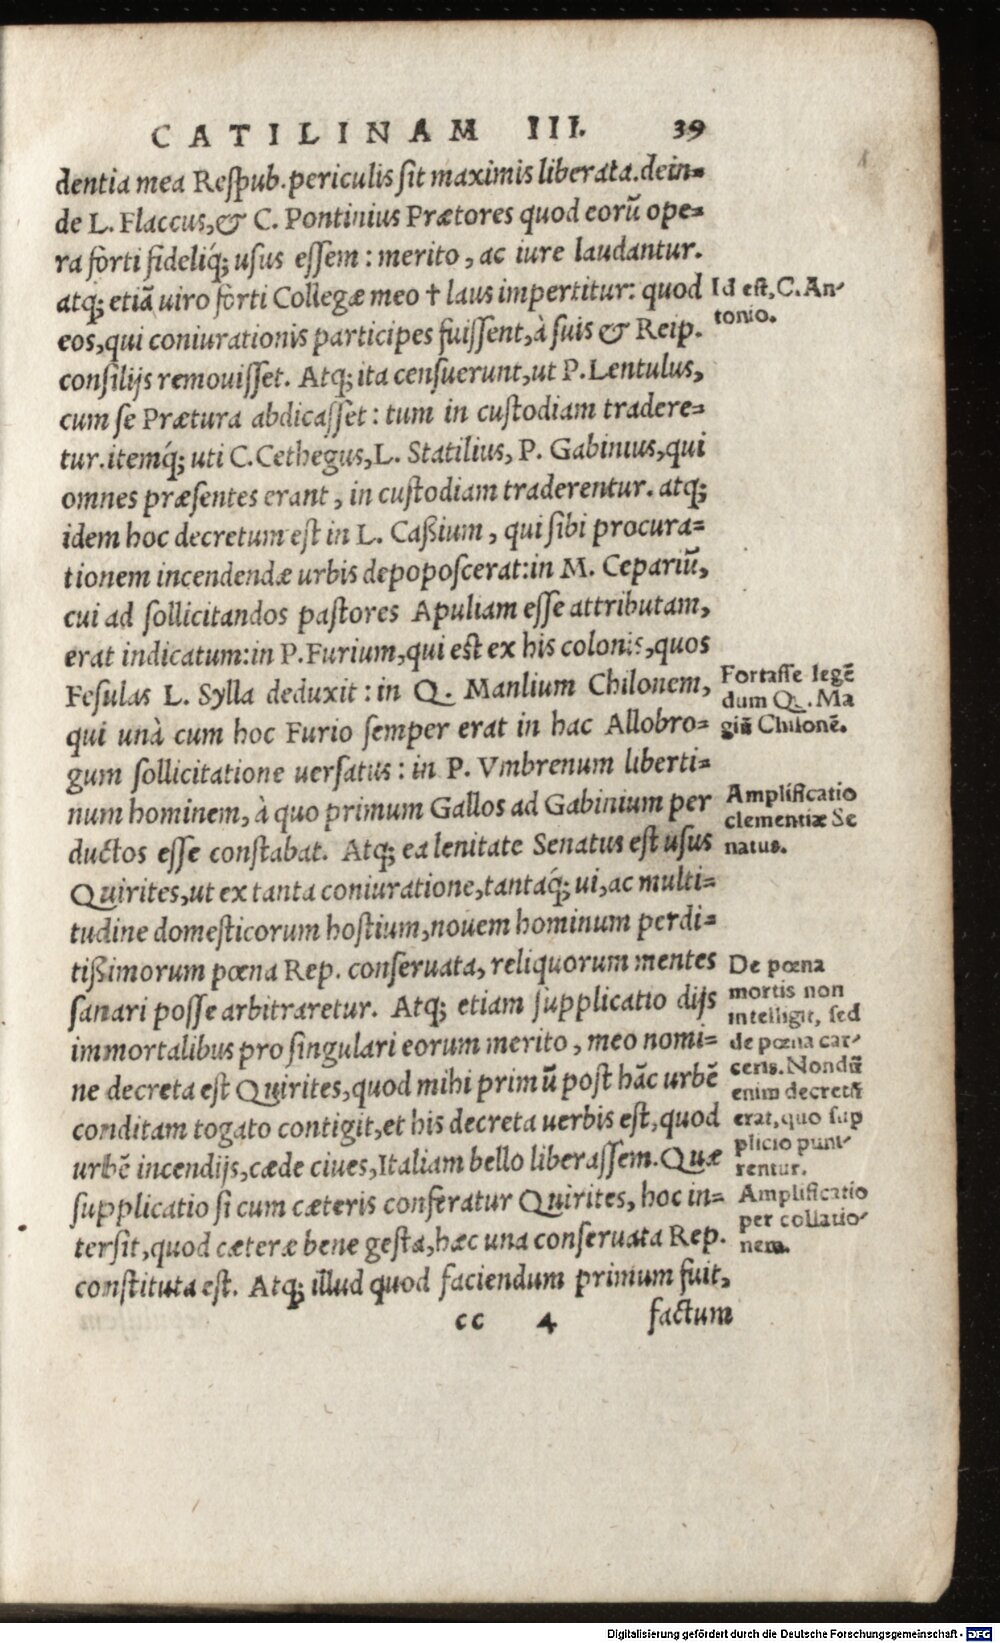 CATILINAM III. 39
dentia mea Respub. periculis sit maximis liberata. dein=
de L. Flaccus, & C. Pontinius Prætores quod eorū ope=
ra forti fideliq́; usus essem: merito, ac iure laudantur.
atq; etiā uiro forti Collegæ meo † laus impertitur: quod
eos, qui coniurationis participes fuissent, à suis & Reip.
consilijs remouisset. Atq; ita censuerunt, ut P. Lentulus,
cum se Prætura abdicasset: tum in custodiam tradere=
tur. itemq́; uti C. Cethegus, L. Statilius, P. Gabinius, qui
omnes præsentes erant, in custodiam traderentur. atq;
idem hoc decretum est in L. Caßium, qui sibi procura=
tionem incendendæ urbis depoposcerat: in M. Cepariū,
cui ad sollicitandos pastores Apuliam esse attributam,
erat indicatum: in P. Furium, qui est ex his colonis, quos
Fesulas L. Sylla deduxit: in Q. Manlium Chilonem,
qui unà cum hoc Furio semper erat in hac Allobro=
gum sollicitatione uersatus: in P. Vmbrenum liberti=
num hominem, à quo primum Gallos ad Gabinium per
ductos esse constabat. Atq; ea lenitate Senatus est usus
Quirites, ut ex tanta coniuratione, tantaq́; ui, ac multi=
tudine domesticorum hostium, nouem hominum perdi=
tißimorum pœna Rep. conseruata, reliquorum mentes
sanari posse arbitraretur. Atq; etiam supplicatio dijs
immortalibus pro singulari eorum merito, meo nomi=
ne decreta est Quirites, quod mihi primū post hāc urbē
conditam togato contigit, et his decreta uerbis est, quod
urbē incendijs, cæde ciues, Italiam bello liberassem. Quæ
supplicatio si cum cæteris conferatur Quirites, hoc in=
tersit, quod cæteræ bene gesta, hæc una conseruata Rep.
constituta est. Atq; illud quod faciendum primum fuit,
cc 4 factum
Id est, C. An-
tonio.
Fortasse legē
dum Q. Ma
giū Chilonē.
Amplificatio
clementiæ Se
natus.
De pœna
mortis non
intelligit, sed
de pœna car-
ceris. Nondū
enim decretū
erat, quo sup
plicio puni-
rentur.
Amplificatio
per collatio-
nem.
Digitalisierung gefördert durch die Deutsche Forschungsgemeinschaft - DFG